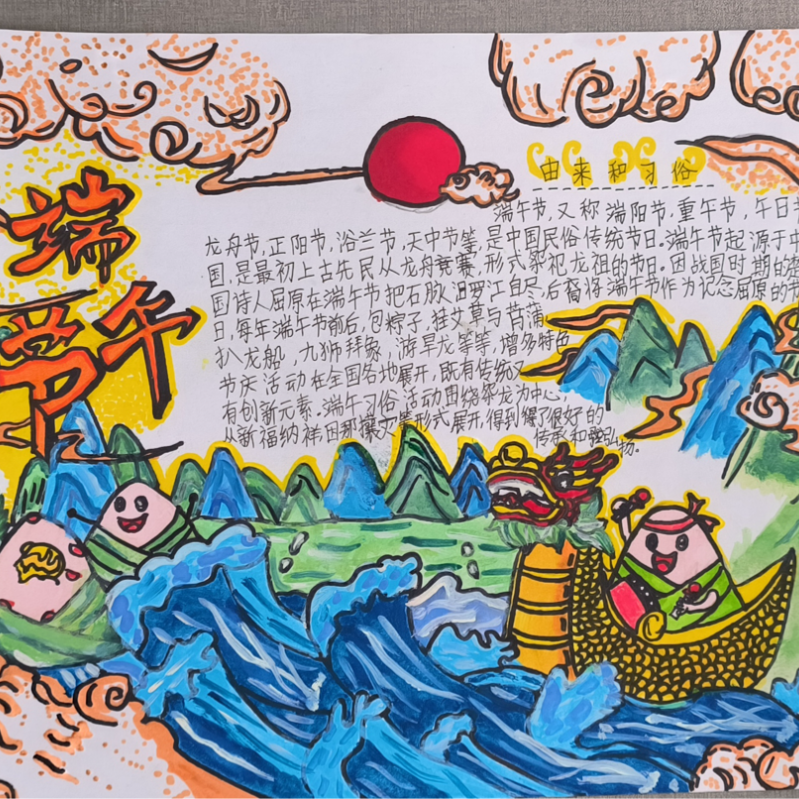 端午节
由来和习俗
端午节,又称端阳节,重午节,午日节
龙舟节,正阳节,浴兰节,天中节等,是中国民俗传统节日.端午节起源于中
国,是最初上古先民从龙舟竞赛,形式祭祀龙祖的节日.因战国时期的楚
国诗人屈原在端午节把石跳汨罗江自尽,后裔将端午节作为记念屈原的节
日,每年端午节前后,包粽子,挂艾草与菖蒲
扒龙船,九狮拜象,游旱龙等等,增多特色
节庆活动在全国各地展开,既有传统又
有创新元素.端午习俗活动围绕祭龙为中心,
从新福纳祥 形式展开,得到 了很好的
传承和 弘扬。